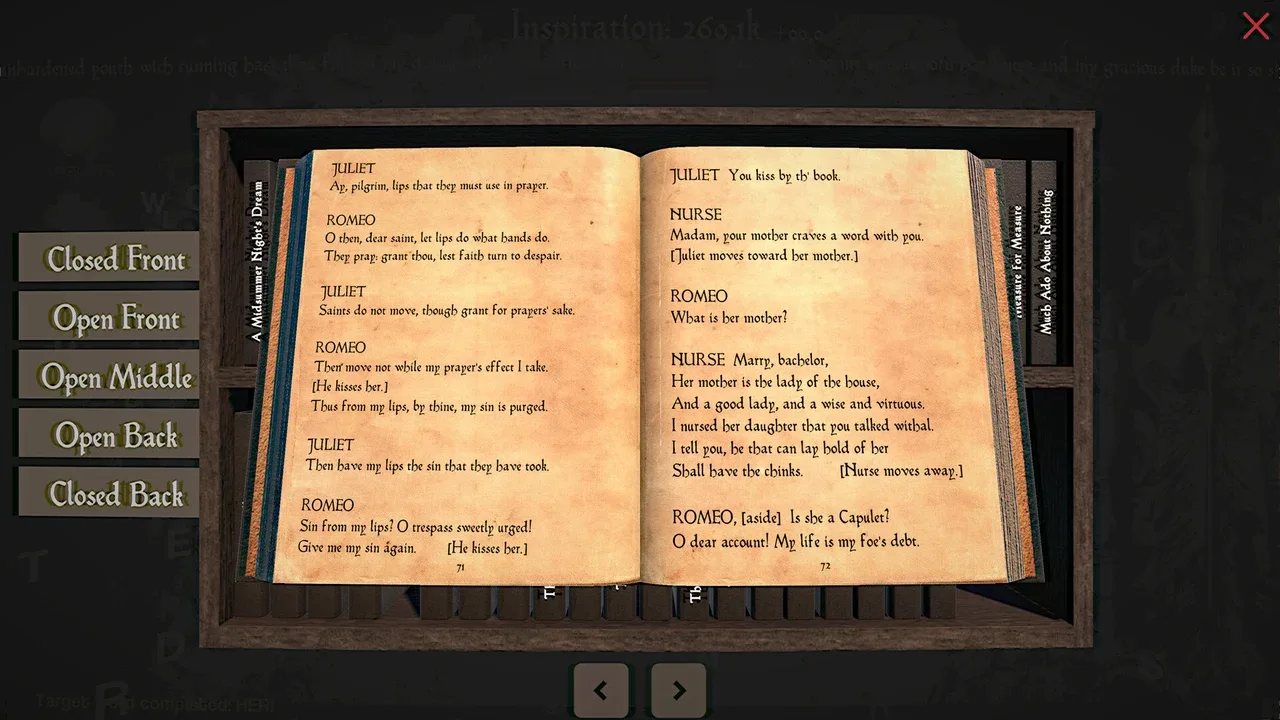 Inspiration: 260.1k
Closed Front
Open Front
Open Middle
Open Back
Closed Back
A Midsummer Night's Dream
JULIET
Ay, pilgrim, lips that they must use in prayer.
ROMEO
O then, dear saint, let lips do what hands do.
They pray: grant thou, lest faith turn to despair.
JULIET
Saints do not move, though grant for prayers' sake.
ROMEO
Then move not while my prayer's effect I take.
[He kisses her.]
Thus from my lips, by thine, my sin is purged.
JULIET
Then have my lips the sin that they have took.
ROMEO
Sin from my lips? O trespass sweetly urged!
Give me my sin again. [He kisses her.]
71
JULIET You kiss by th' book.
NURSE
Madam, your mother craves a word with you.
[Juliet moves toward her mother.]
ROMEO
What is her mother?
NURSE Marry, bachelor,
Her mother is the lady of the house,
And a good lady, and a wise and virtuous.
I nursed her daughter that you talked withal.
I tell you, he that can lay hold of her
Shall have the chinks. [Nurse moves away.]
ROMEO, [aside] Is she a Capulet?
O dear account! My life is my foe's debt.
72
Measure for Measure
Much Ado About Nothing
Target completed: HER!